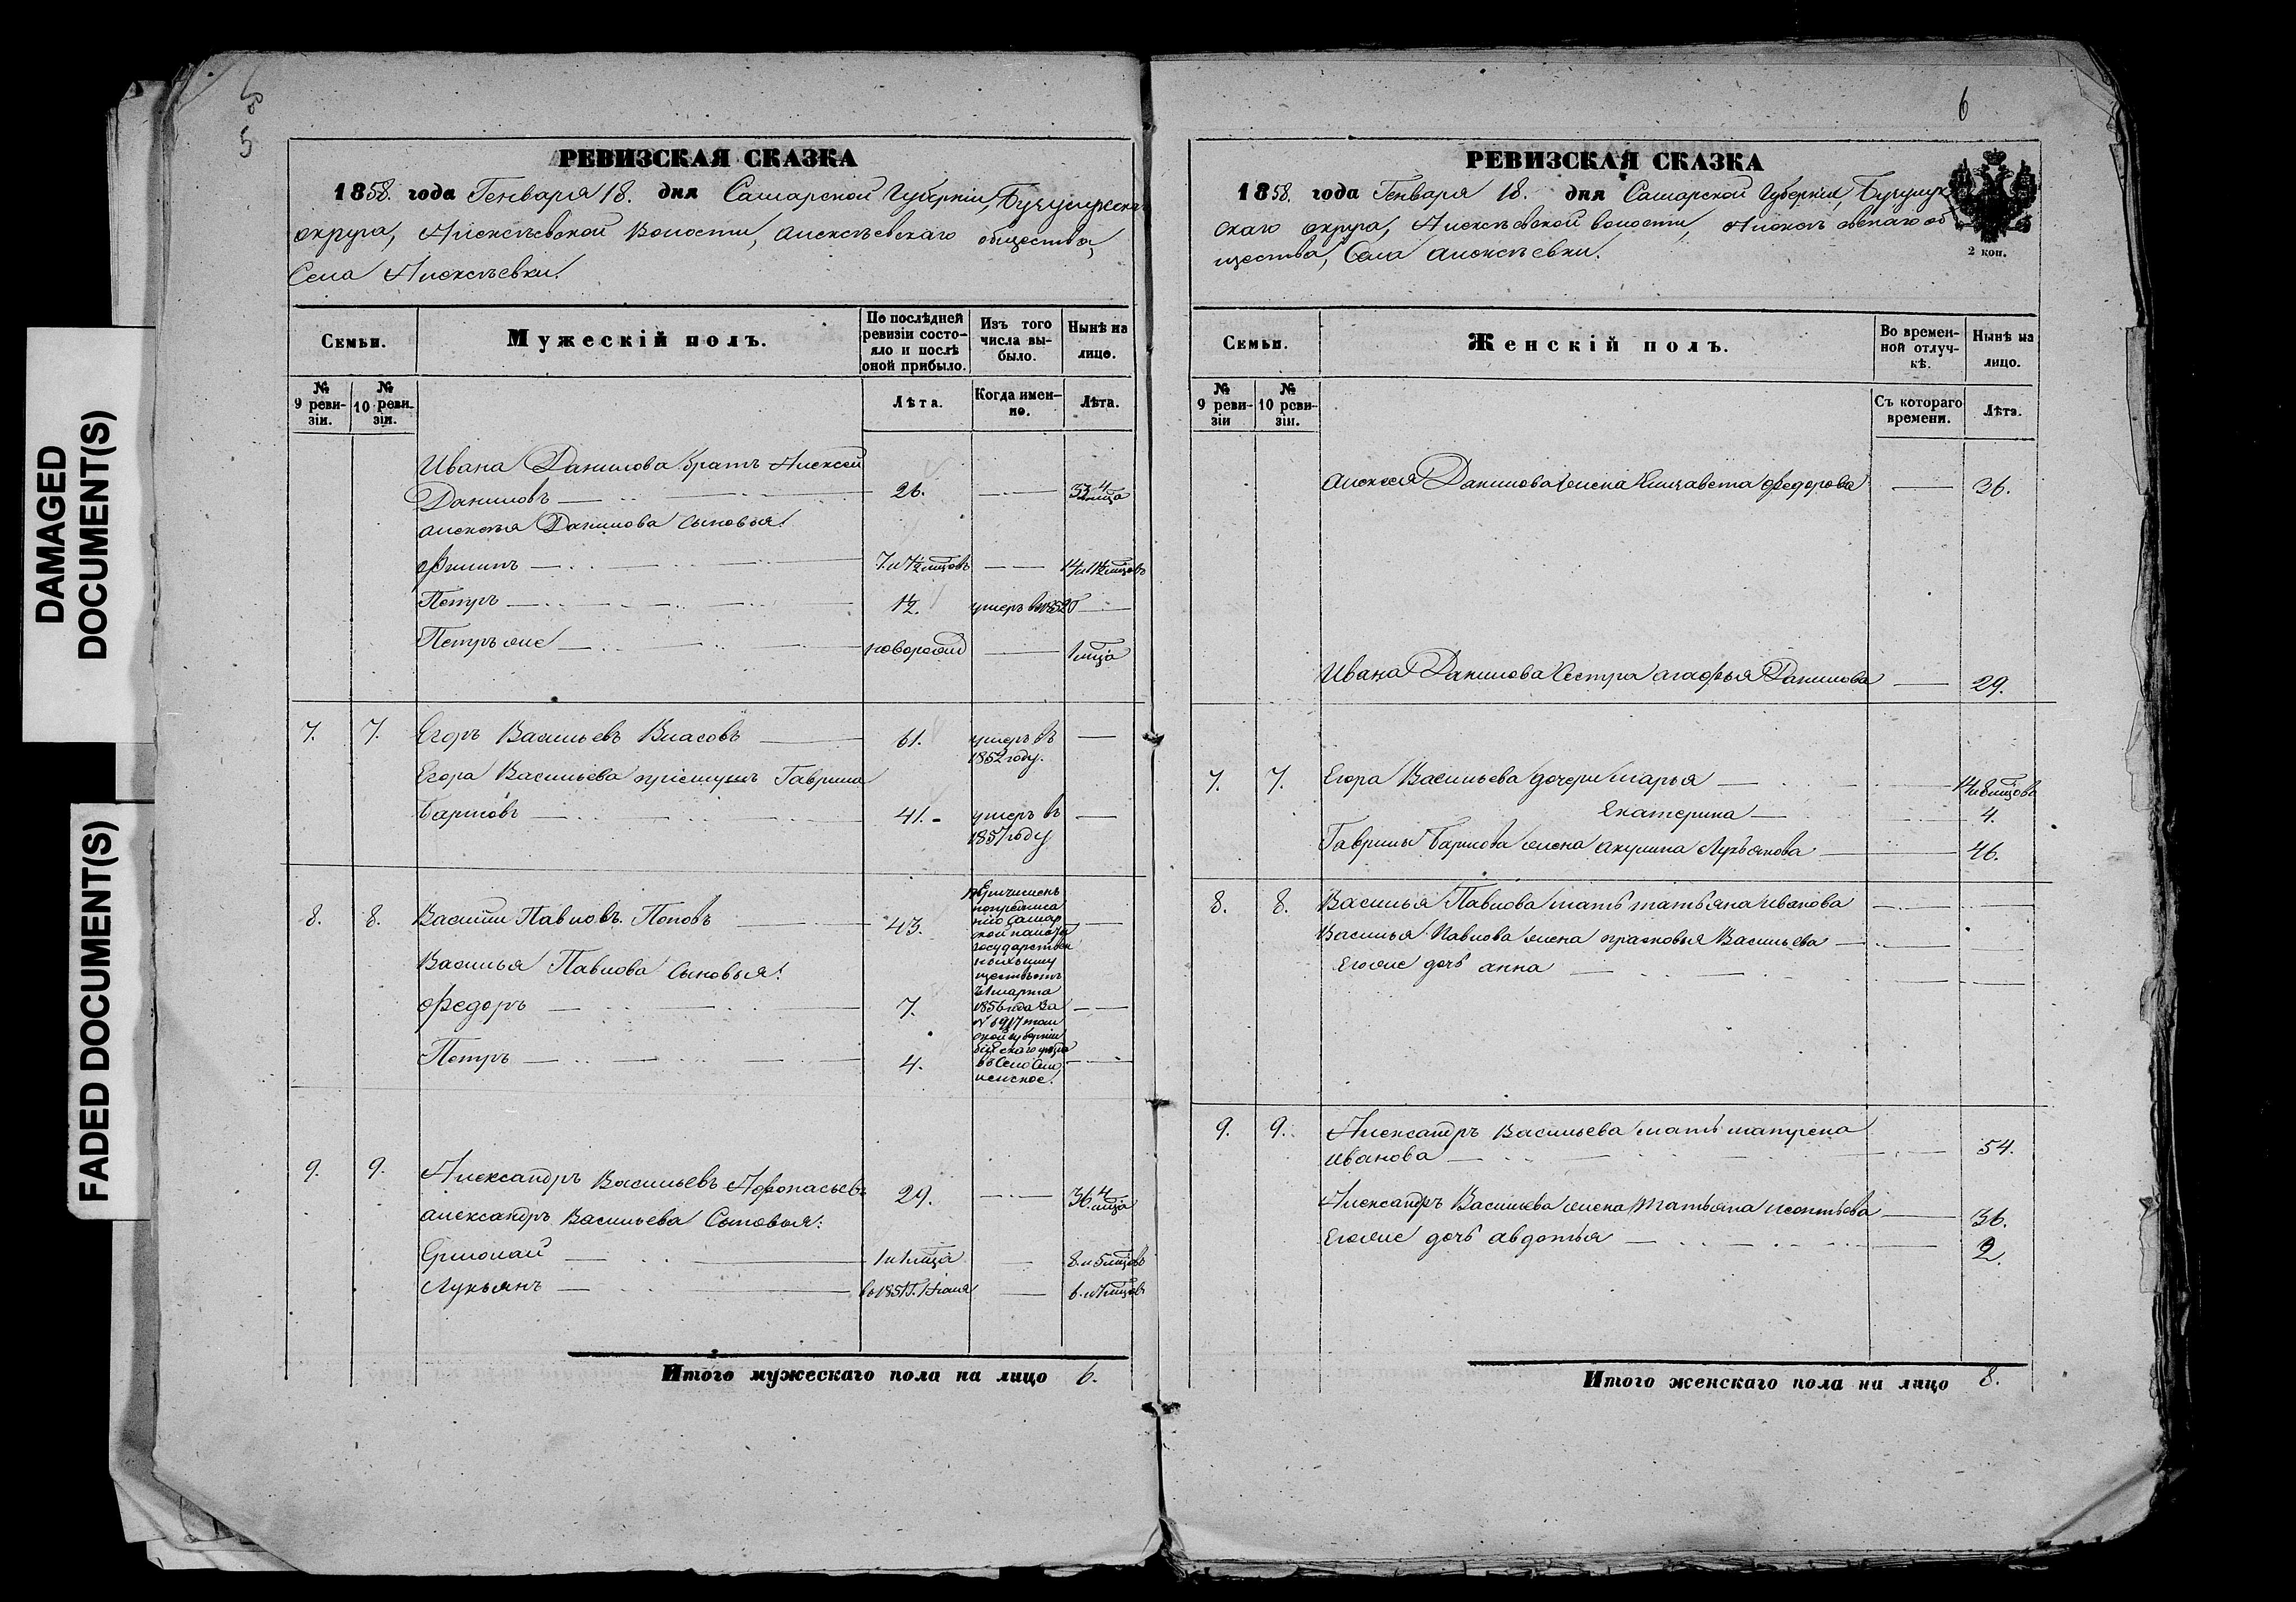 DAMAGED
DOCUMENT(S)
FADED DOCUMENT(S)
5
РЕВИЗСКАЯ СКАЗКА
1858. года Генваря 18. дня Самарской Губерніи, Бузулукска
округа, Алексѣевской Волости, Алексѣевскаго общества,
Села Алексѣевки.
Семьи.
Мужескій полъ.
По послѣдней ревизіи состояло и послѣ оной прибыло.
Изъ того числа выбыло.
Ныне на лице.
№ 9 ревизіи.
№ 10 ревизіи.
Лѣта.
Когда именно.
Лѣта.
Ивана Данилова братъ Алексѣй
Даниловъ 26. 33 4 мца
Алексѣя Данилова Сыновья:
Филипъ 7. и 7½ мцовъ 14 и 11½ мцовъ
Петръ ½. умеръ в 1852 г
Петръ же новорожд 1 мца
7. 7. Егоръ Васильевъ Власовъ 61. умеръ въ
1852 году.
Егора Васильева пріемушъ Гаврила
41. умеръ въ
1857 году
8. 8. Василій Павловъ Поповъ 43.
Перечисленъ
по предписа
нію Самар
ской палаты
государствен
ныхъ иму
ществъ отъ
марта
1856 года за
№ 6917 том
ской губерніи
бійскаго
въ Село
Василья Павлова Сыновья:
Федоръ 7.
Петръ 4.
9. 9. Александръ Васильевъ Афонасьевъ 29. 36. 4 мца
Александръ Васильева Сыновья:
Ермолай 1 и 1 мца 8. и 5 мцовъ
Лукьянъ 6. и 7 мцовъ
Итого мужескаго пола на лицо 6.
6
РЕВИЗСКАЯ СКАЗКА
1858. года Генваря 18. дня Самарской Губерніи, Бузулук
скаго округа, Алексѣевской волости, Алексѣевскаго об
щества, Села Алексѣевки.
2 коп.
Семьи.
Женскій полъ.
Во временной отлучкѣ.
Нынѣ на лицо.
№ 9 ревизіи
№ 10 ревизіи.
Съ котораго времени.
Лѣта.
Алексѣя Данилова жена Елизавета Федорова 36.
Ивана Данилова Сестра Агафья Данилова 29.
7. 7. Егора Васильева дочери Марья 14 и 8 мцовъ
Екатерина 4.
Гаврилы жена Акулина Лукьянова 46.
8. 8. Василья Павлова мать Татьяна Иванова
Василья Павлова жена Прасковья Васильева
Его же дочь Анна
9. 9. Александръ Васильева мать Матрена
Иванова 54.
Александръ Васильева жена Татьяна Леонтьева 36.
Его же дочь Авдотья 2.
Итого женскаго пола на лицо 8.